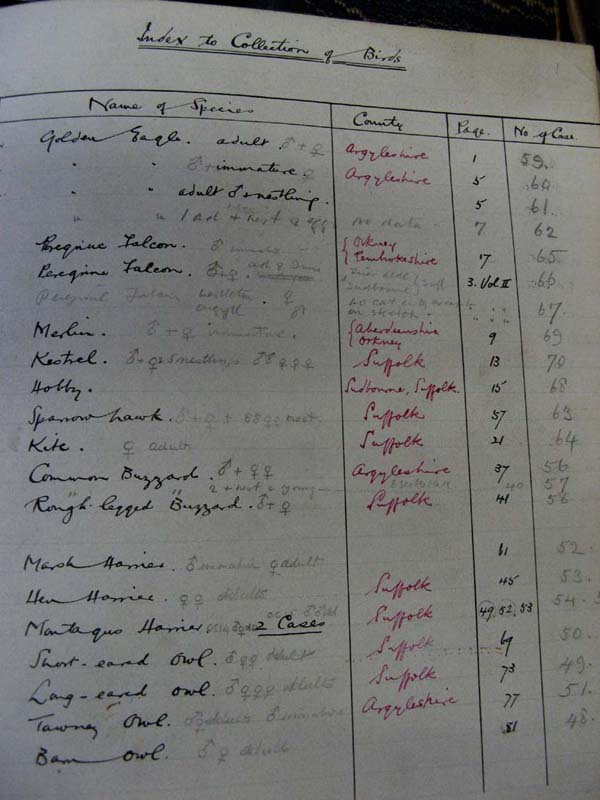 Index to Collection of Birds
Name of Species County Page. No of Case.
Golden Eagle. adult ♂ + ♀ Argyleshire 1 59.
" " ♂ + immature ♀ Argyleshire 5 60
" " adult ♂ + nestling. 5 61.
" " 1 ad + nest & egg no data. 7 62
Peregrine Falcon. ♂ immature { Orkney
{ Pembrokeshire 17 65
Peregrine Falcon. ♂ ♀ Sudbourne 3. Vol II 66
Peregrine Falcon ♀ 67
Merlin. ♂ + ♀ immature. { Aberdeenshire
{ Orkney 9 69
Kestrel. ♂ + ♀ 5 nestlings ♂♂ ♀♀♀ Suffolk 13 70
Hobby. Sudbourne, Suffolk. 15 68
Sparrow hawk. ♂ + ♀ + nest. Suffolk 57 63
Kite. ♀ adult Suffolk 21 64
Common Buzzard. ♂ + ♀♀ Argyleshire 37 56
" " 2 + nest & young 40 57
Rough-legged Buzzard. ♂ + ♀ Suffolk 41 58
Marsh Harrier. ♂ immature ♀ adult 61 52.
Hen Harrier. ♀♀ adults Suffolk 45 53.
Montagus Harrier 2 Cases Suffolk 49, 52, 53 54.
Short-eared Owl. ♂ ♀♀ adult Suffolk 69 50.
Long-eared Owl. ♂ ♀♀♀ adults Suffolk 73 49.
Tawney Owl. ♂♀ adults ♂ immature Argyleshire 77 51.
Barn Owl. ♂ ♀ adult 81 48.